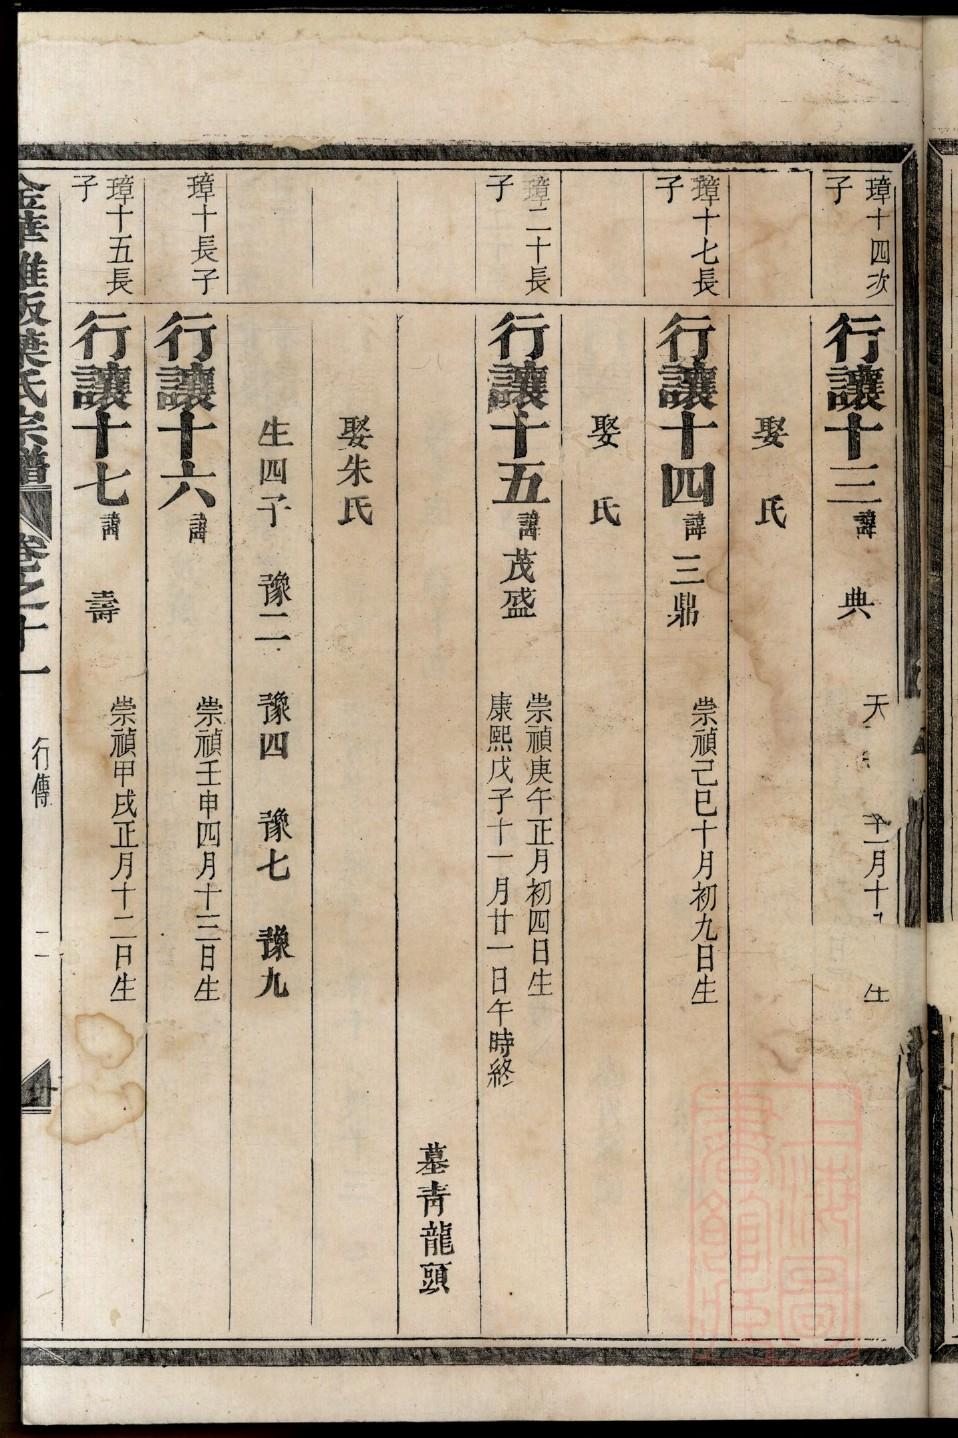 璋十四次子
行讓十三 諱 典 天 一月十 生
娶 氏
璋十七長子
行讓十四 諱三鼎 崇禎己巳十月初九日生
娶 氏
璋二十長子
行讓十五 諱茂盛 崇禎庚午正月初四日生
康熙戊子十一月廿一日午時終
墓青龍頭
娶朱氏
生四子 豫二 豫四 豫七 豫九
璋十長子
行讓十六 諱 崇禎壬申四月十三日生
璋十五長子
行讓十七 諱 壽 崇禎甲戌正月十二日生
金華雅畈葉氏宗譜 卷之十一 行傳 二
上海圖書館藏